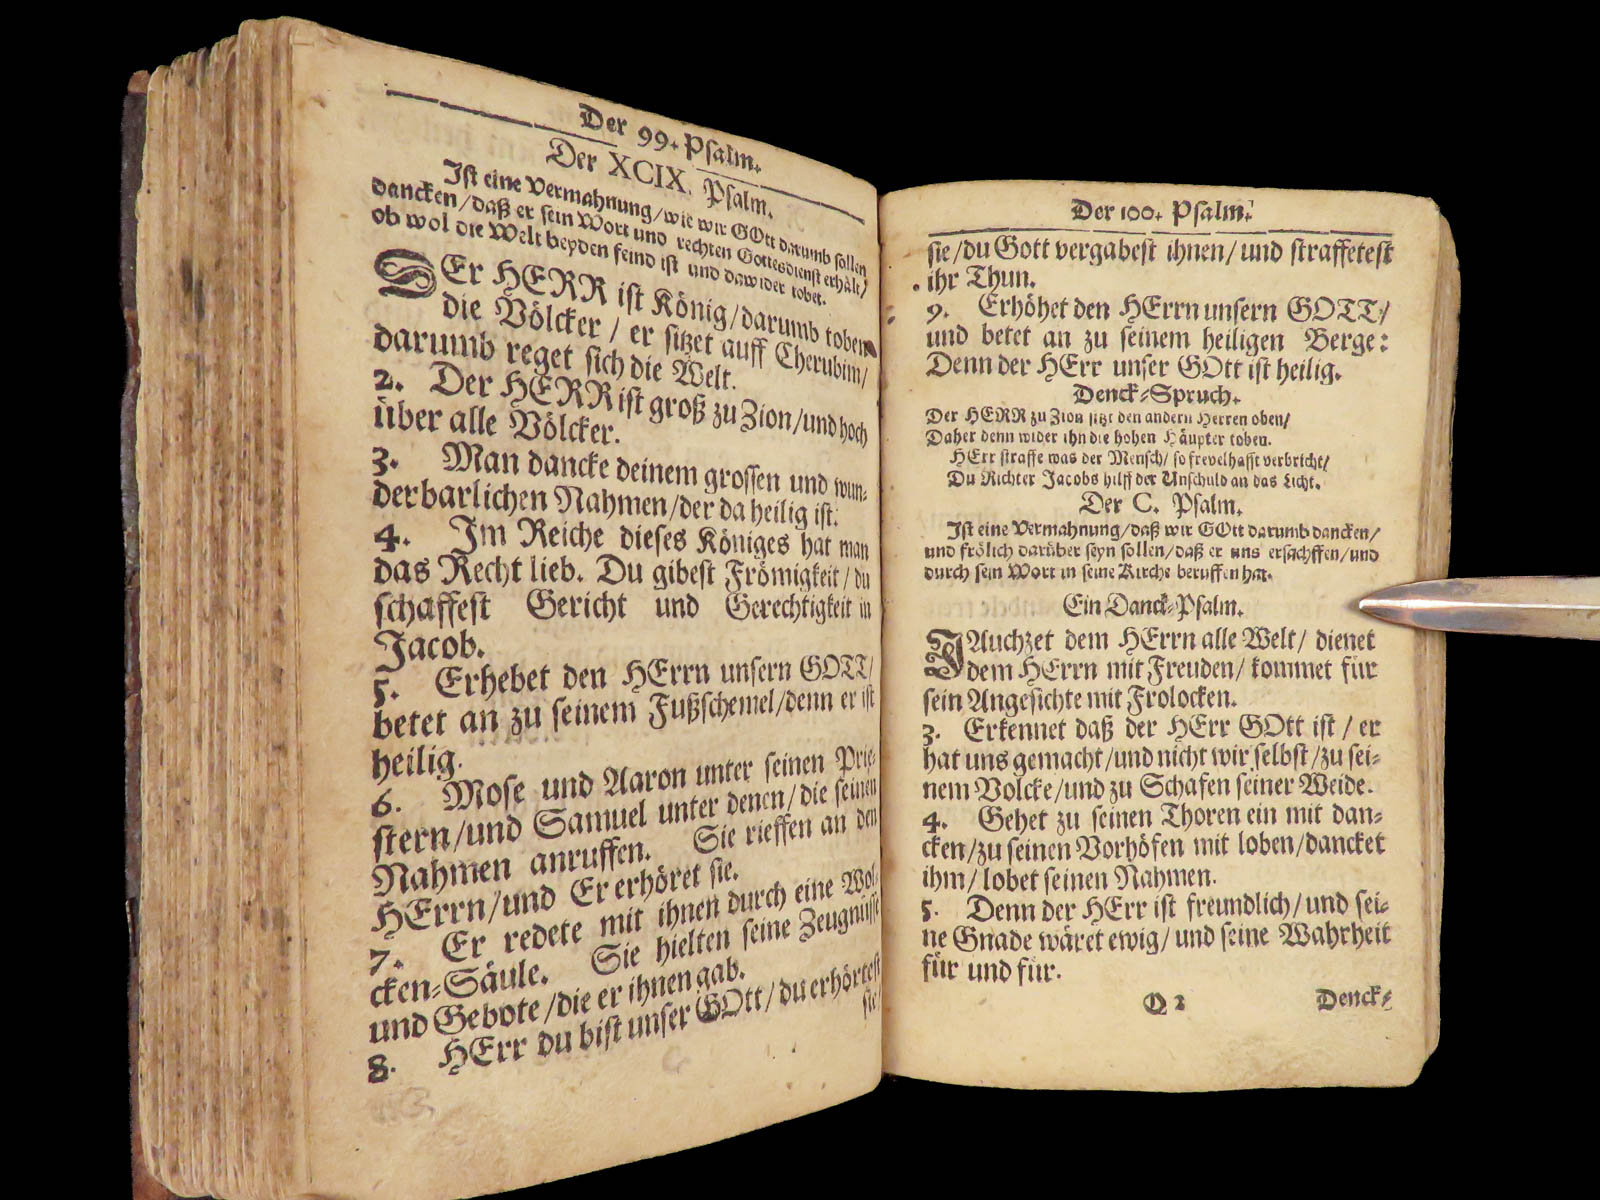 Der 99. Psalm.
Der XCIX. Psalm.
Ist eine Vermahnung/wie wir GOtt darumb sollen
dancken/daß er sein Wort und rechten Gottesdienst erhält/
ob wol die Welt beyden feind ist und dawider tobet.
DEr HERR ist König/darumb toben
die Völcker / er sitzet auff Cherubim/
darumb reget sich die Welt.
2. Der HERR ist groß zu Zion/und hoch
über alle Völcker.
3. Man dancke deinem grossen und wun-
derbarlichen Nahmen/der da heilig ist.
4. Im Reiche dieses Königes hat man
das Recht lieb. Du gibest Frömigkeit / du
schaffest Gericht und Gerechtigkeit in
Jacob.
5. Erhebet den HErrn unsern GOTT/
betet an zu seinem Fußschemel/denn er ist
heilig.
6. Mose und Aaron unter seinen Prie-
stern/und Samuel unter denen/die seinen
Nahmen anruffen. Sie rieffen an den
HErrn/und Er erhöret sie.
7. Er redete mit ihnen durch eine Wol-
cken-Säule. Sie hielten seine Zeugnüsse
und Gebote/die er ihnen gab.
8. HErr du bist unser GOtt/du erhörtest
sie/
Der 100. Psalm.
sie/du Gott vergabest ihnen/und straffetest
ihr Thun.
9. Erhöhet den HErrn unsern GOTT/
und betet an zu seinem heiligen Berge:
Denn der HErr unser GOtt ist heilig.
Denck-Spruch.
Der HERR zu Zion sitzt den andern Herren oben/
Daher denn wider ihn die hohen Häupter toben.
HErr straffe was der Mensch/so frevelhafft verbricht/
Du Richter Jacobs hilff der Unschuld an das Licht.
Der C. Psalm.
Ist eine Vermahnung/daß wir GOtt darumb dancken/
und frölich darüber seyn sollen/daß er uns ersachffen/und
durch sein Wort in seine Kirche beruffen hat.
Ein Danck-Psalm.
JAuchzet dem HErrn alle Welt/ dienet
dem HErrn mit Freuden/ kommet für
sein Angesichte mit Frolocken.
3. Erkennet daß der HErr GOtt ist / er
hat uns gemacht/und nicht wir selbst/zu sei-
nem Volcke/und zu Schafen seiner Weide.
4. Gehet zu seinen Thoren ein mit dan-
cken/zu seinen Vorhöfen mit loben/dancket
ihm/lobet seinen Nahmen.
5. Denn der HErr ist freundlich/und sei-
ne Gnade wäret ewig/und seine Wahrheit
für und für.
Q 2 Denck-